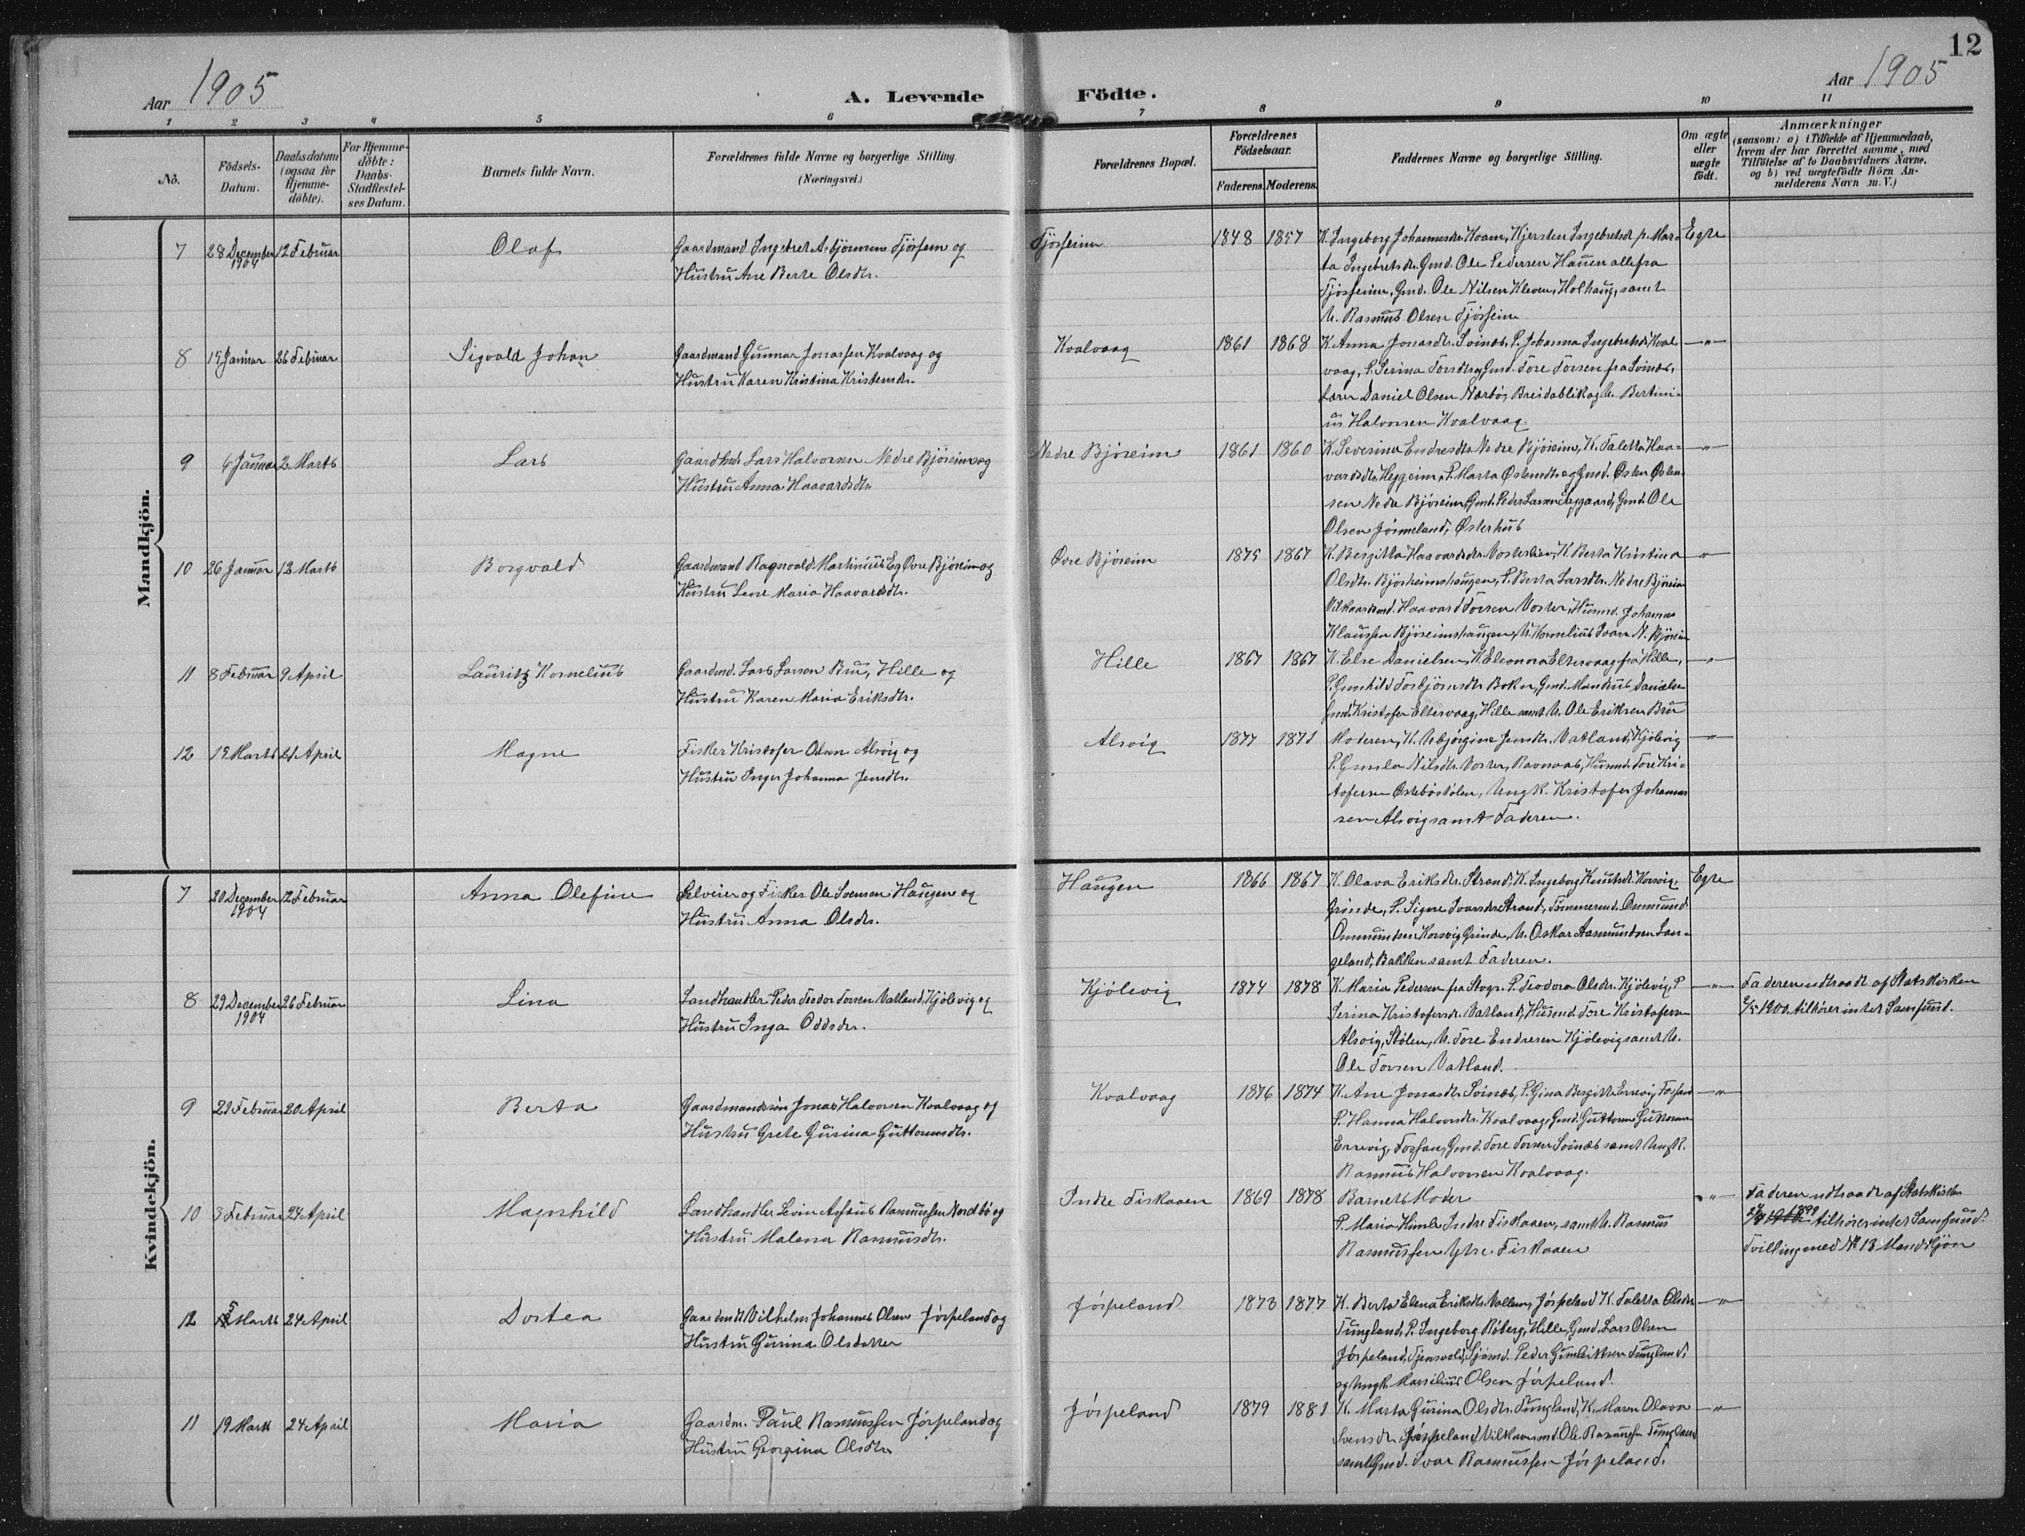 12
Aar 1905
A. Levende Födte.
Aar 1905
1 2 3 4 5 6 7 8 9 10 11
Nô.
Födsels-
Datum.
Daabsdatum
(ogsaa för
Hjemme-
döbte).
For Hjemme-
döbte:
Daabs-
Stadfæstel-
ses Datum.
Barnets fulde Navn.
Forældrenes fulde Navne og borgerlige Stilling.
(Næringsvei.)
Forældrenes Bopæl.
Forældrenes
Födselsaar.
Faderens. Moderens.
Faddernes Navne og borgerlige Stilling.
Om ægte
eller
uægte
födt.
Anmærkninger
(saasom: a) i Tilfælde af Hjemmedaab,
hvem der har forrettet samme, med
Tilföielse af to Daabsvidners Navne,
og b) ved uægtefödte Börn An-
melderens Navn m. V.)
Mandkjön.
7 28 December 1904 12 Februar Olaf
Gaardmand Ingebret Asbjørnsen Tjøsseim og
Hustru Ane Berte Olsdtr.
Tjøsseim 1848 1857
K. Ingeborg Johannesdr. Hoem, Kjersten Ingebretsdr. p. Mar-
ta Ingebretsdr. Gmd. Ole Pedersen Hauen alle fra
Tjøsseim, Gmd. Ole Nilsen Kleven, Holhaug, samt
U. Rasmus Olsen Tjøsseim
Egte
8 15 Januar 26 Februar Sigvald Johan
Gaardmand Gunnar Jonassen Kvalvaag og
Hustru Karen Kristina Kristensdr.
Kvalvaag 1861 1868
K. Anna Jonasdtr. Svines, P. Johanna Ingebretsdr. Kval-
vaag, P. Serina Torsdtr. og Gmd. Tore Torsen fra Svines,
Lærer Daniel Olsen Nærbø, Breidablik og U. Bertini-
us Halvorsen Kvalvaag
—"—
9 6 Januar 2 Marts Lars
Gaardbr. Lars Halvorsen Nedre Bjøreim og
Hustru Anna Haavardsdtr.
Nedre Bjøreim 1861 1860
K. Severine Endresdtr. Nedre Bjøreim, K. Taletta Haa-
vardsdtr. Heggeim, P. Marta Østensdtr. og Gmd. Østen Østen-
sen Nedre Bjøreim, Gmd. Peder Larsen Byggaard, Gmd. Ole
Olsen Jørmeland, Østerhus
—"—
10 26 Januar 12 Marts Borgvald
Gaardmand Ragnvald Martinius Eg Øvre Bjøreim og
Hustru Lene Maria Haavardsdtr.
Øvre Bjøreim 1875 1867
K. Bergitta Haavardsdr. Vosterlien, K. Berta Kristina
Olsdtr. Bjørheimshaugen, P. Berta Larsdtr. Nedre Bjøreim
Vilkaarsmd. Haavard Torsen Voster, Husmd. Johannes
Klaussen Bjøreimshaugen, U. Kornelius Ivarsn N. Bjøreim
—"—
11 8 Februar 9 April Lauritz Kornelius
Gaardmd. Lars Larsen Bru, Hille og
Hustru Karen Maria Eriksdtr.
Hille 1867 1867
K. Else Danielsen, K. Eleonora Eltervaag fra Hille,
P. Gunhild Torbjørnsdtr. Bokn, Gmd. Mandius Danielse
Gmd. Kristofer Eltervaag, Hille samt U. Ole Eriksen Bru
—"—
12 15 Marts 21 April Magne
Fisker Kristofer Olsen Alsvig og
Hustru Inger Johanna Jensdtr.
Alsvig 1877 1871
Moderen, K. Asbjørgine Jensdtr. Vatland, Kjølevig
P. Gunla Nilsdtr. Voster, Ravnaas, Husmd. Tore Kri-
stofersen Østebøstølen, Ungk. Kristofer Johannes
sen Alsvig samt Faderen.
—"—
Kvindekjön.
7 20 December 1904 12 Februar Anna Olefine
Selveier og Fisker Ole Svensen Haugen og
Hustru Anna Olsdtr.
Haugen 1866 1867
K. Olava Eriksdtr. Strand, K. Ingeborg Knutsdr. Korsvig,
Grinde, P. Signe Ivarsdtr. Strand, Tømmermd. Ommund
Ommundsen Korsvig Grinde, U. Oskar Aasmundsen Lan-
geland, Bakken samt Faderen.
Egte
8 29 December 1904 26 Februar Lina
Landhandler Peder Teodor Torsen Vatland, Kjølevig og
Hustru Inga Oddsdr.
Kjølevig 1874 1878
K. Maria Pedersen fra Stvgr. P. Teodora Olsdr. Kjølevig, P.
Serina Kristofersdr. Vatland, Husmd. Tore Kristofersen
Alsvig, Stølen, U. Tore Endresen Kjølevig samt U.
Ole Torsen Vatland.
—"—
Faderen udtraadt af Statskirken
2/5 1900, tilhører intet Samfund.
9 21 Februar 20 April Berta
Gaardmandssøn Jonas Halvorsen Kvalvaag og
Hustru Grete Gurina Guttormsdtr.
Kvalvaag 1876 1874
K. Ane Jonasdtr. Svines, P. Gina Bergitte Errevig, Fossan
P. Hanna Halvorsdtr. Kvalvaag, Gmd. Guttorm Gutormsen
Errevig, Fossan, Gmd. Tore Torsen Svines samt Ungk.
Rasmus Halvorsen Kvalvaag.
—"—
10 3 Februar 24 April Magnhild
Landhandler Levin Asseus Rasmussen Nordbø og
Hustru Malena Rasmusdtr.
Indre Fiskaaen 1869 1878
Barnets Moder
P. Maria Humle Indre Fiskaaen, samt U. Rasmus
Rasmussen Ytre Fiskaaen
—"—
Faderen udtraadt af Statskirken
1899 tilhører intet Samfund.
Tvilling med № 13 Mandkjøn
12 5 Marts 24 April Dortea
Gaardmd. Vilhelm Johannes Olsen Jørpeland og
Hustru Gurina Olsdatter
Jørpeland 1873 1877
K. Berta Elena Eriksdtr. Vallem, Jørpeland K. Taletta Olsdtr
Tungland, P. Ingeborg Røberg, Hille, Gmd. Lars Olsen
Jørpeland, Tjensvold, Sjømd. Peder Gundersen Tungland,
og Ungk. Marselius Olsen Jørpeland.
—"—
11 19 Marts 24 April Maria
Gaardm. Paul Rasmussen Jørpeland og
Hustru Georgina Olsdtr
Jørpeland 1879 1881
K. Marta Gurina Olsdtr. Tungland, K. Maren Olava
Svensdr. Jørpeland, Vilkaarsmd. Ole Rasmussen Tungland
samt Gmd. Ivar Rasmussen Jørpeland.
—"—